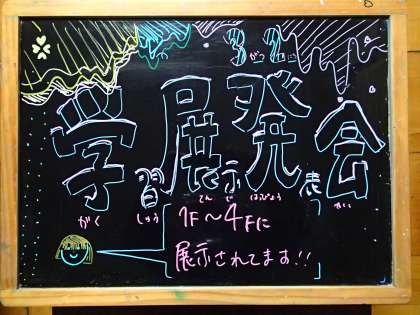 3がつ2にち
学習展示発表会
がくしゅうてんじはっぴょうかい
1F〜4Fに
展示されてます!!